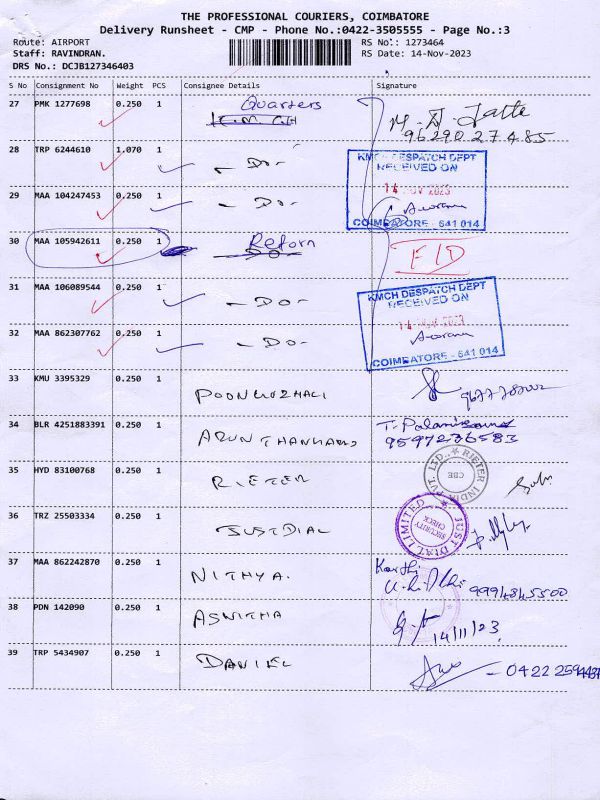 THE PROFESSIONAL COURIERS, COIMBATORE
Delivery Runsheet - CMP - Phone No.:0422-3505555 - Page No.:3
Route: AIRPORT RS No.: 1273464
Staff: RAVINDRAN. RS Date: 14-Nov-2023
DRS No.: DCJB127346403
S No Consignment No Weight PCS Consignee Details Signature
27 PMK 1277698 0.250 1 Quarters
96290 27485
28 TRP 6244610 1.070 1 - Do -
KMCH DESPATCH DEPT
RECEIVED ON
14 NOV 2023
COIMBATORE - 641 014
29 MAA 104247453 0.250 1 - Do -
30 MAA 105942611 0.250 1 Retorn
31 MAA 106089544 0.250 1 - Do -
KMCH DESPATCH DEPT
RECEIVED ON
14 NOV 2023
COIMBATORE - 641 014
32 MAA 862307762 0.250 1 - Do -
33 KMU 3395329 0.250 1 POONGUZHALI
34 BLR 4251883391 0.250 1 T. Palanisamy
9597236583
35 HYD 83100768 0.250 1 RIETER
RIETER INDIA PVT. LTD.,
CBE
36 TRZ 25503334 0.250 1 JUSTDIAL
JUST DIAL LIMITED
SECURITY CHECK
37 MAA 862242870 0.250 1 NITHYA. Karthi
9994845500
38 PDN 142090 0.250 1 ASWITHA 14/11/23
39 TRP 5434907 0.250 1 DANIEL